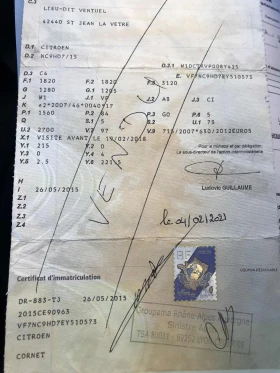 C.3
LIEU-DIT VERTUEL
42440 ST JEAN LA VETRE
D.1 CITROEN
D.2 NC9HD7/1S
D.2.1 M10CTRVP008Y435
D.3 C4
E. VF7NC9HD7EY510573
F.1 1820 F.2 1820 F.3 3120
G 1280 G.1 1205
J M1 J.2 AB J.3 CI
K e2*2007/46*0040*17
P.1 1560 P.2 84 P.3 GO P.6 5
Q S.1 5 S.2 U.1 73
U.2 2700 V.7 97 V.9 715/2007*630/2012EURO5
X.1 VISITE AVANT LE 19/02/2018
Y.1 215 Y.2 0
Y.3 0 Y.4 4
Y.5 2.5 Y.6 221.5
Pour le ministre et par délégation,
Le sous-directeur de l'action interministérielle
H
I 26/05/2015
Z.1
Z.2
Z.3
Z.4
Ludovic GUILLAUME
VENDU
le 04/02/2021
Certificat d'immatriculation
DR-883-TJ 26/05/2015
2015CE90963
VF7NC9HD7EY510573
CITROEN
CORNET
Groupama Rhône-Alpes Auvergne